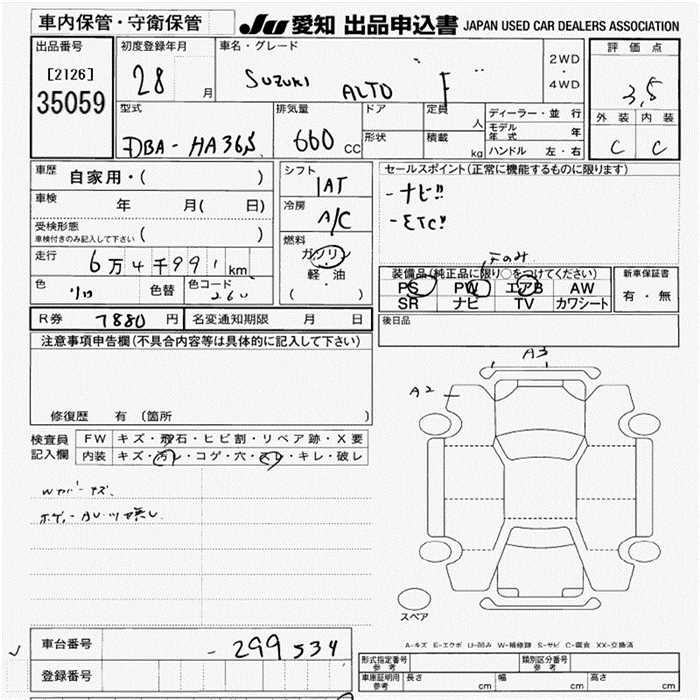 車内保管・守衛保管
JU 愛知 出品申込書 JAPAN USED CAR DEALERS ASSOCIATION
出品番号
[2126]
35059
初度登録年月
28 月
車名・グレード
SUZUKI ALTO F
2WD
・
4WD
評価点
3.5
外装 内装
C C
型式
DBA-HA36S
排気量
660 CC
ドア
形状
定員
人
積載
kg
ディーラー・並行
モデル年式 年
ハンドル 左・右
車歴 自家用・( )
車検 年 月( 日)
受検形態
車検付きのみ記入して下さい ( )
走行 6万4千991km
色 色替 色コード
シフト
IAT
冷房
A/C
燃料
ガソリン
軽・油
( )
セールスポイント(正常に機能するものに限ります)
-ナビ!!
-ETC!!
装備品(純正品に限り○をつけてください)
PS PW エアB AW
SR ナビ TV カワシート
新車保証書
有・無
後日品
R券 7880円 名変通知期限 月 日
注意事項申告欄(不具合内容等は具体的に記入して下さい)
修復歴 有 (箇所 )
検査員記入欄
FW キズ・飛石・ヒビ割・リペア跡・X要
内装 キズ・汚レ・コゲ・穴・スレ・キレ・破レ
A3
A2
スペア
A-キズ E-エクボ U-凹み W-補修跡 S-サビ C-腐食 XX-交換済
車台番号 -299534
登録番号
形式指定番号
参考
類別区分番号
参考
車庫証明用
参考
長さ cm 幅 cm 高さ cm